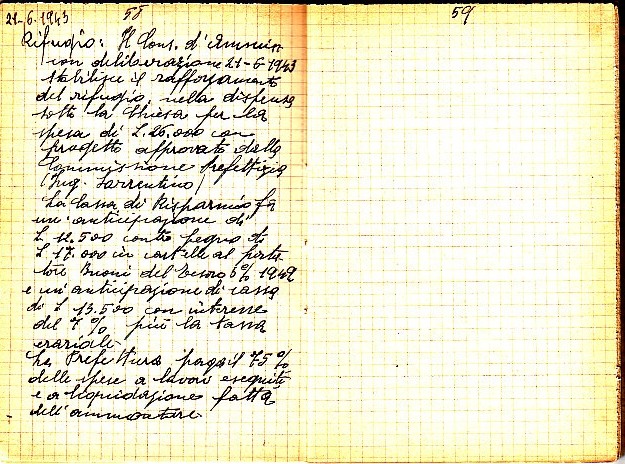 21-6-1943 58
Rifugio: Il Cons. d'Ammin
con deliberazione 21-6-1943
stabilisce il rafforzamento
del rifugio, nella dispensa
sotto la Chiesa per la
spesa di £. 26.000 con
progetto approvato dalla
Commissione Prefettizia
(Ing. Sorrentino)
La Cassa di Risparmio fa
un'anticipazione di
£ 12.500 contro pegno di
£ 17.000 in cartelle al porta
tore Buoni del Tesoro 5% 1949
e un'anticipazione di cassa
di £ 13.500 con interesse
del 7% più la tassa
erariale
La Prefettura paga il 75%
delle spese a lavori eseguiti
e a liquidazione fatta
dell'ammontare
59